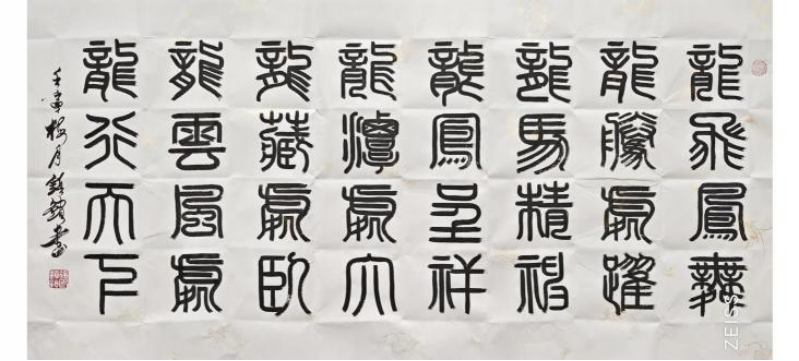 龍飛鳳舞
龍騰虎躍
龍馬精神
龍鳳呈祥
龍潭虎穴
龍藏虎臥
龍雲風虎
龍行天下
壬寅梅月書
ZEISS